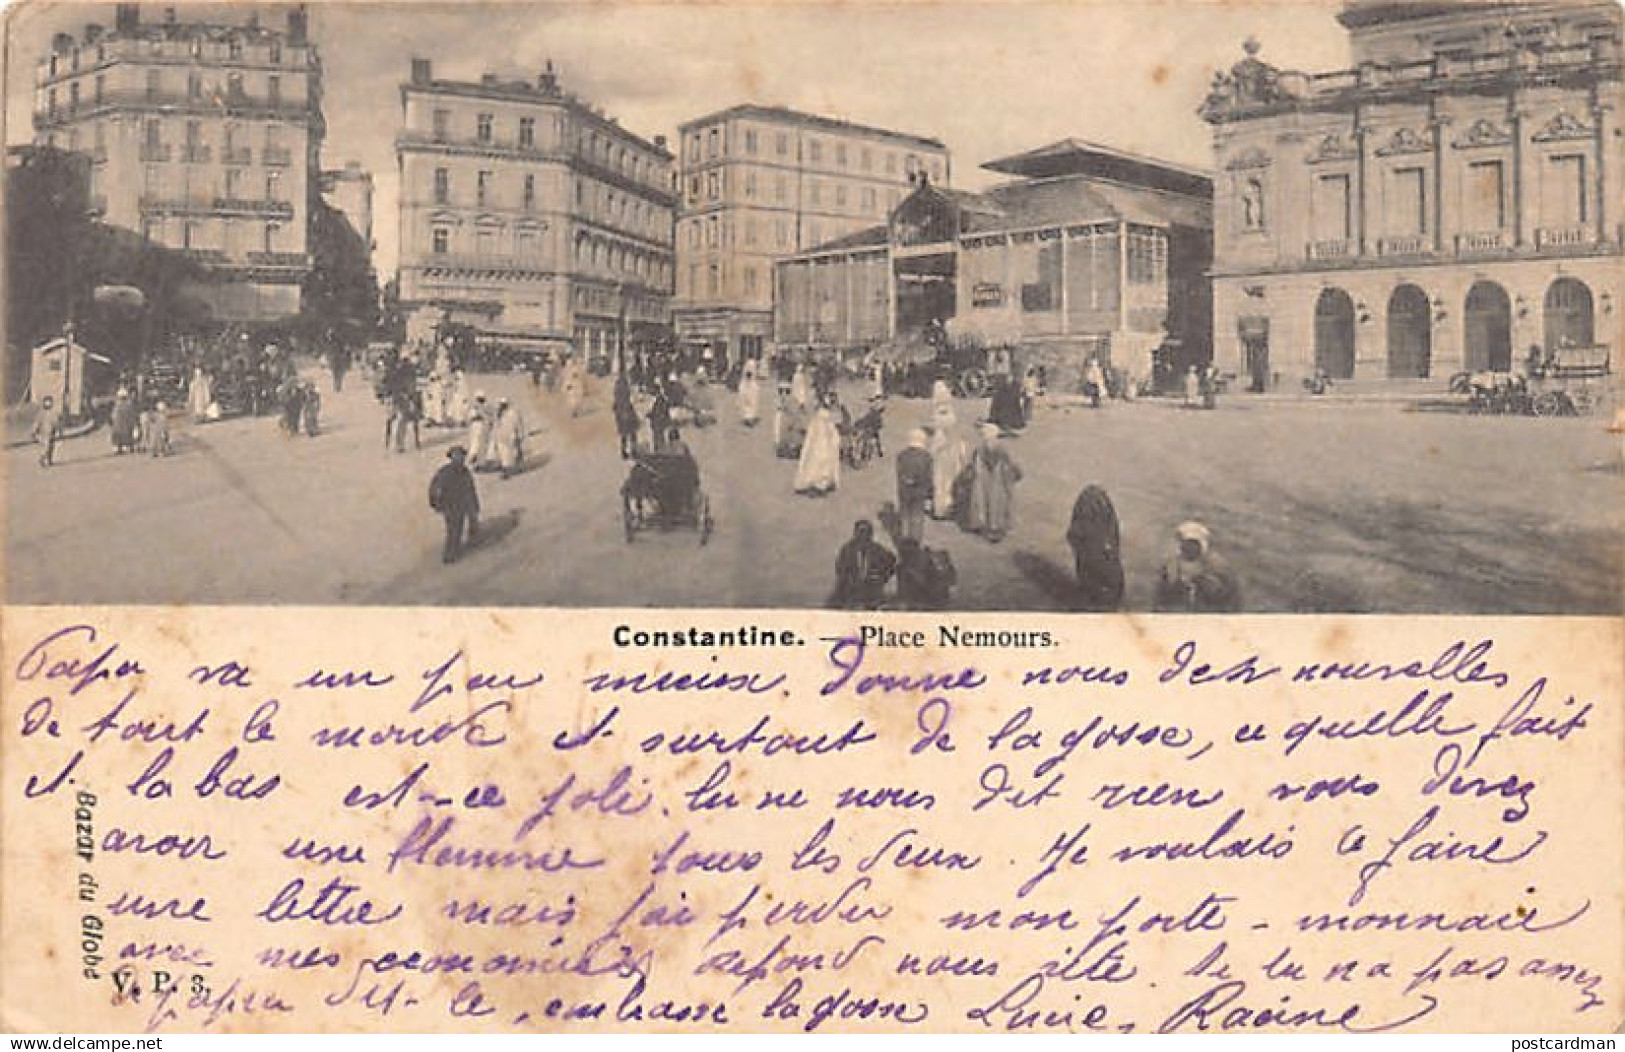 Constantine. — Place Nemours.
Papa va un peu mieux. Donne nous des nouvelles
de tout le monde et surtout de la gosse, ce quelle fait
et la bas est-ce joli. tu ne nous dit rien vous devez
avoir une flemme tous les deux. Je voulais te faire
une lettre mais j'ai perdu mon porte-monnaie
avec mes economies repond nous vite. Si tu n a pas assez
a papa dit-le, embrasse la gosse Lucie. Racine
Bazar du Globe
V. P. 3.
postcardman